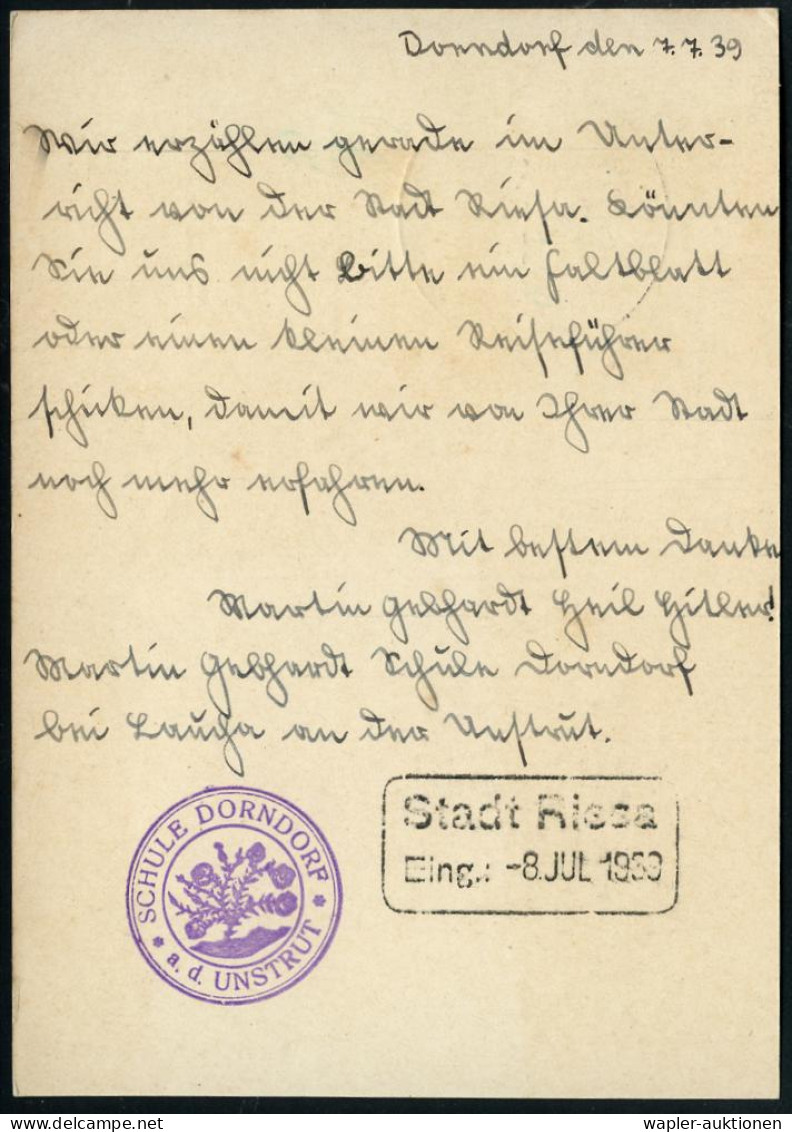 Dorndorf den 7.7.39
Wir erzählen gerade im Unter-
richt von der Stadt Riesa. Könnten
Sie uns nicht bitte ein Faltblatt
oder einen kleinen Reiseführer
schicken, damit wir von Ihrer Stadt
noch mehr erfahren.
Mit bestem Danke
Martin Gebhardt Heil Hitler!
Martin Gebhardt Schule Dorndorf
bei Laucha an der Unstrut.
SCHULE DORNDORF
* a. d. UNSTRUT *
Stadt Riesa
Eing.: -8. JUL 1939
wapler-auktionen
delcampe.net